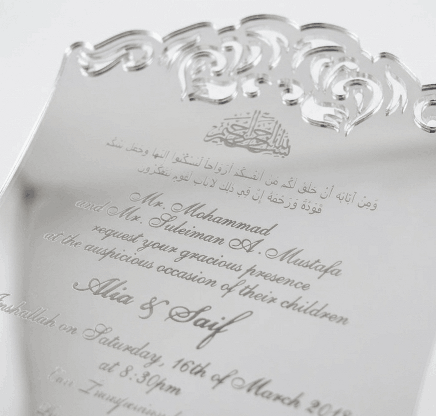 بسم الله الرحمن الرحيم
وَمِنْ آيَاتِهِ أَنْ خَلَقَ لَكُم مِّنْ أَنفُسِكُمْ أَزْوَاجًا لِتَسْكُنُوا إِلَيْهَا وَجَعَلَ بَيْنَكُم
مَوَدَّةً وَرَحْمَةً إِنَّ فِي ذَلِكَ لَآيَاتٍ لِقَوْمٍ يَتَفَكَّرُونَ
Mr. Mohammad
and Mr. Suleiman A. Mustafa
request your gracious presence
at the auspicious occasion of their children
Alia & Saif
Inshallah on Saturday, 16th of March 201
at 8:30pm